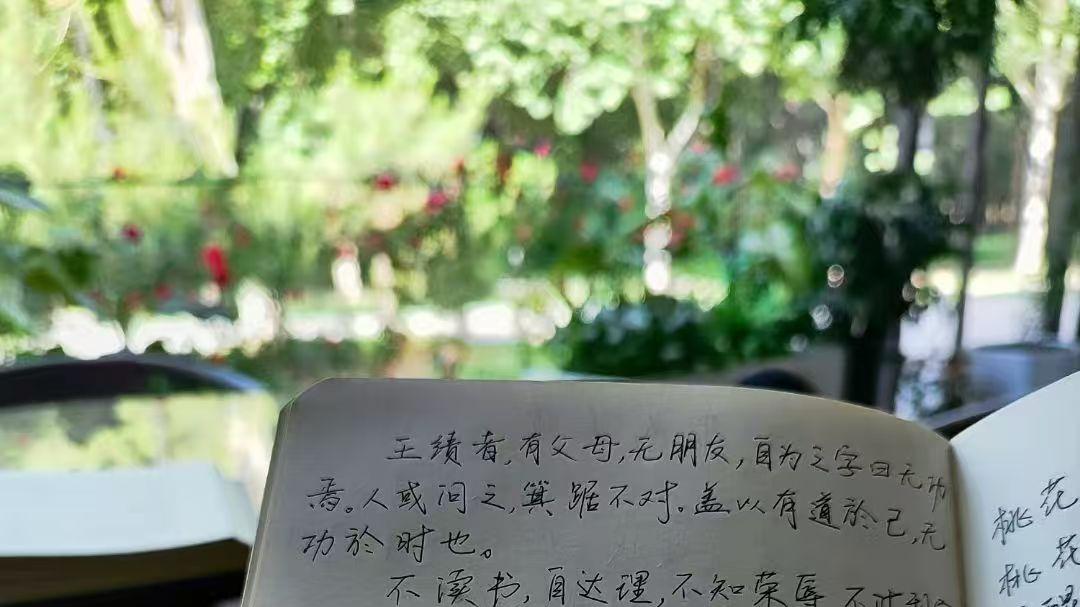 王绩者,有父母,无朋友,自为之字曰无功
焉。人或问之,箕踞不对。盖以有道於己,无
功於时也。
不读书,自达理,不知荣辱
桃花
桃花